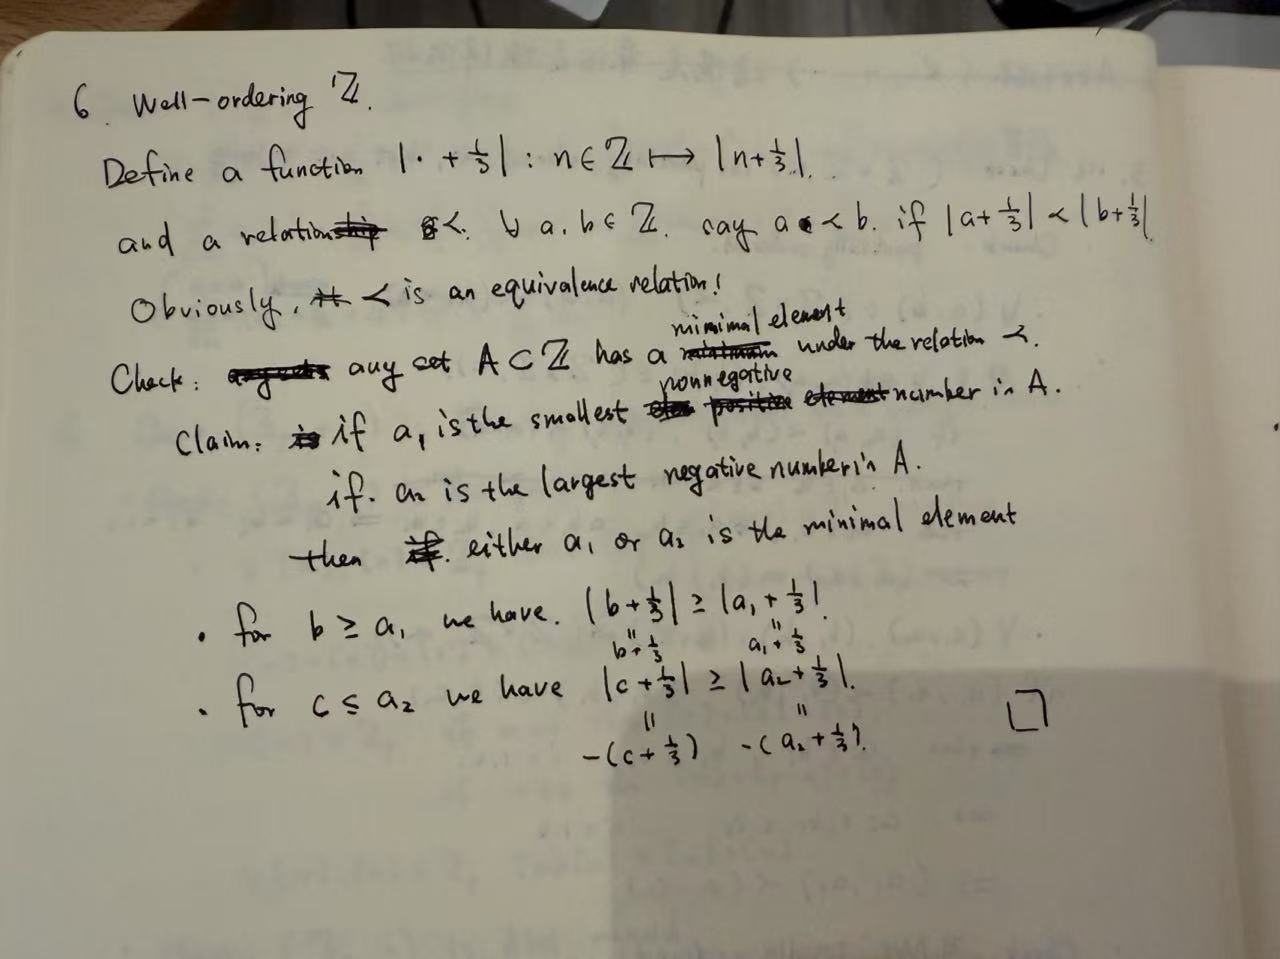 6. Well-ordering ℤ.
Define a function |· + 1/3| : n ∈ ℤ ↦ |n + 1/3|.
and a relation ≺. ∀ a, b ∈ ℤ. say a ≺ b. if |a + 1/3| < |b + 1/3|
Obviously, ≺ is an equivalence relation!
minimal element
Check: any set A ⊂ ℤ has a under the relation ≺.
nonnegative
Claim: if a₁ is the smallest number in A.
if. a₂ is the largest negative number in A.
then either a₁ or a₂ is the minimal element
· for b ≥ a₁ we have. |b + 1/3| ≥ |a₁ + 1/3|.
= =
b + 1/3 a₁ + 1/3
· for c ≤ a₂ we have |c + 1/3| ≥ |a₂ + 1/3|.
= =
-(c + 1/3) -(a₂ + 1/3).
□